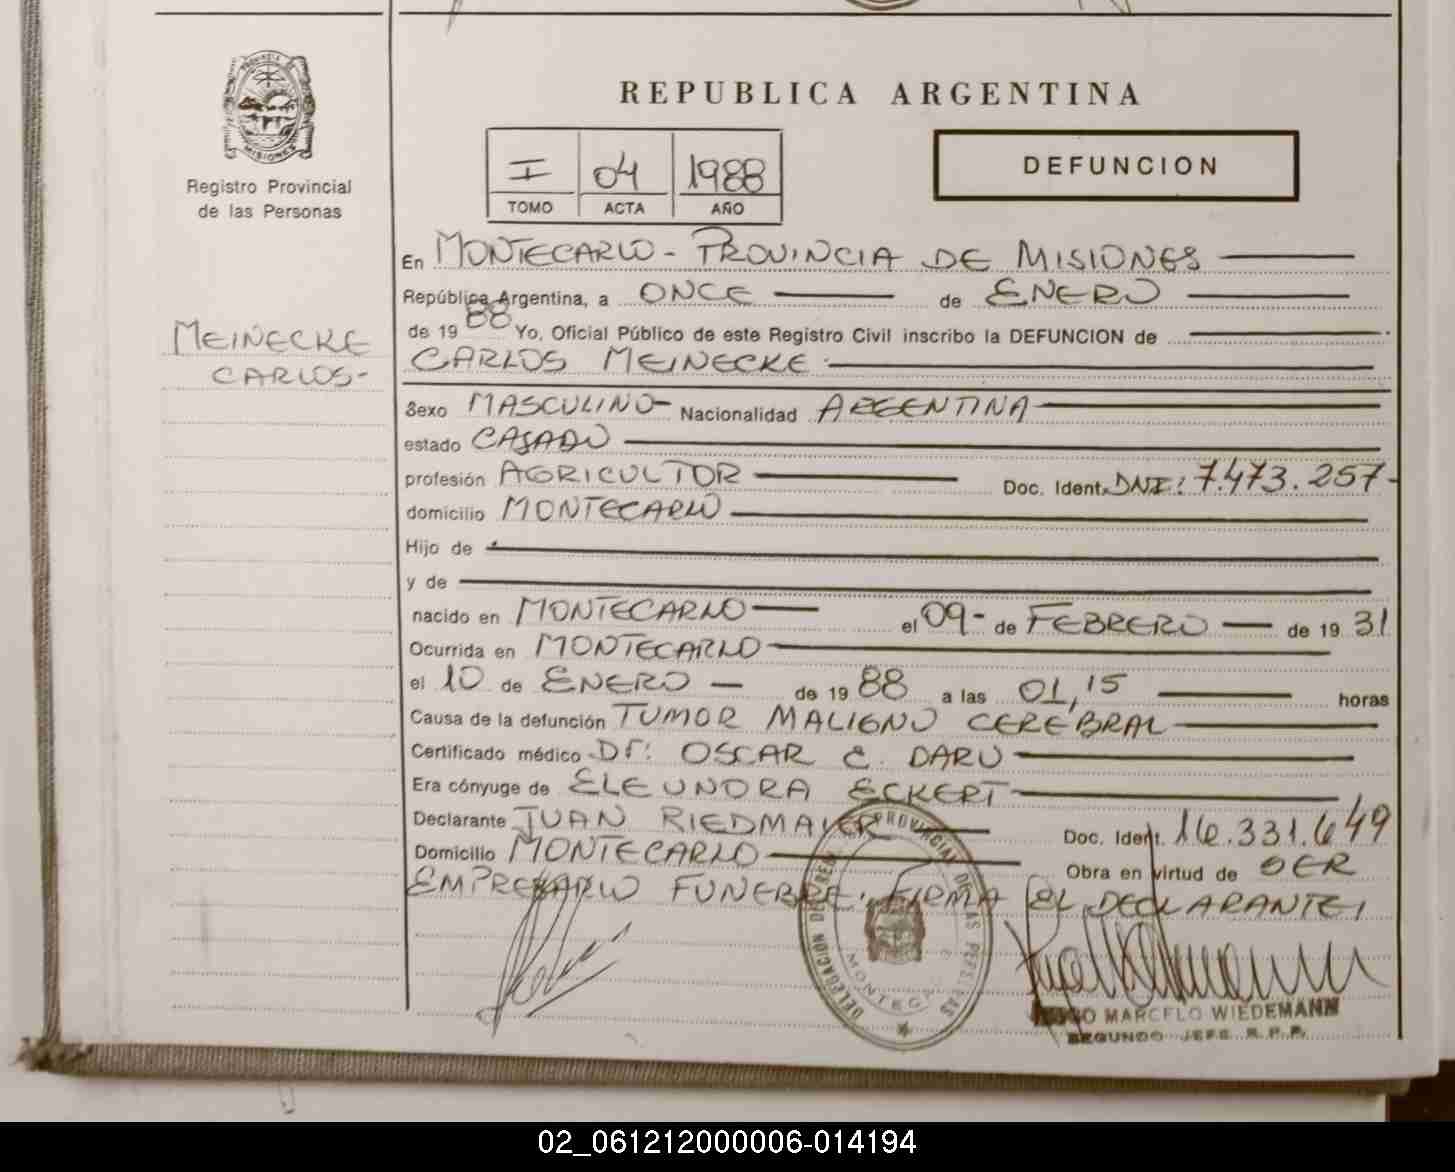 PROVINCIA DE
MISIONES
Registro Provincial
de las Personas
MEINECKE
CARLOS-
REPUBLICA ARGENTINA
I 04 1988
TOMO ACTA AÑO
DEFUNCION
En MONTECARLO - PROVINCIA DE MISIONES
República Argentina, a ONCE de ENERO
de 1988 Yo, Oficial Público de este Registro Civil inscribo la DEFUNCION de
CARLOS MEINECKE
Sexo MASCULINO- Nacionalidad ARGENTINA
estado CASADO
profesión AGRICULTOR Doc. Ident. DNI: 7.473.257-
domicilio MONTECARLO
Hijo de
y de
nacido en MONTECARLO el 09- de FEBRERO de 1931
Ocurrida en MONTECARLO
el 10 de ENERO de 1988 a las 01,15 horas
Causa de la defunción TUMOR MALIGNO CEREBRAL
Certificado médico Dr: OSCAR E. DARU
Era cónyuge de ELEUNORA ECKERT
Declarante JUAN RIEDMAIER Doc. Ident. 16.331.649
Domicilio MONTECARLO Obra en virtud de SER
EMPRESARIO FUNEBRE. FIRMA EL DECLARANTE,
DELEGACION DEL REG. PROVINCIAL DE LAS PERSONAS
MONTEC
MARCELO WIEDEMANN
SEGUNDO JEFE R.P.P.
02_061212000006-014194